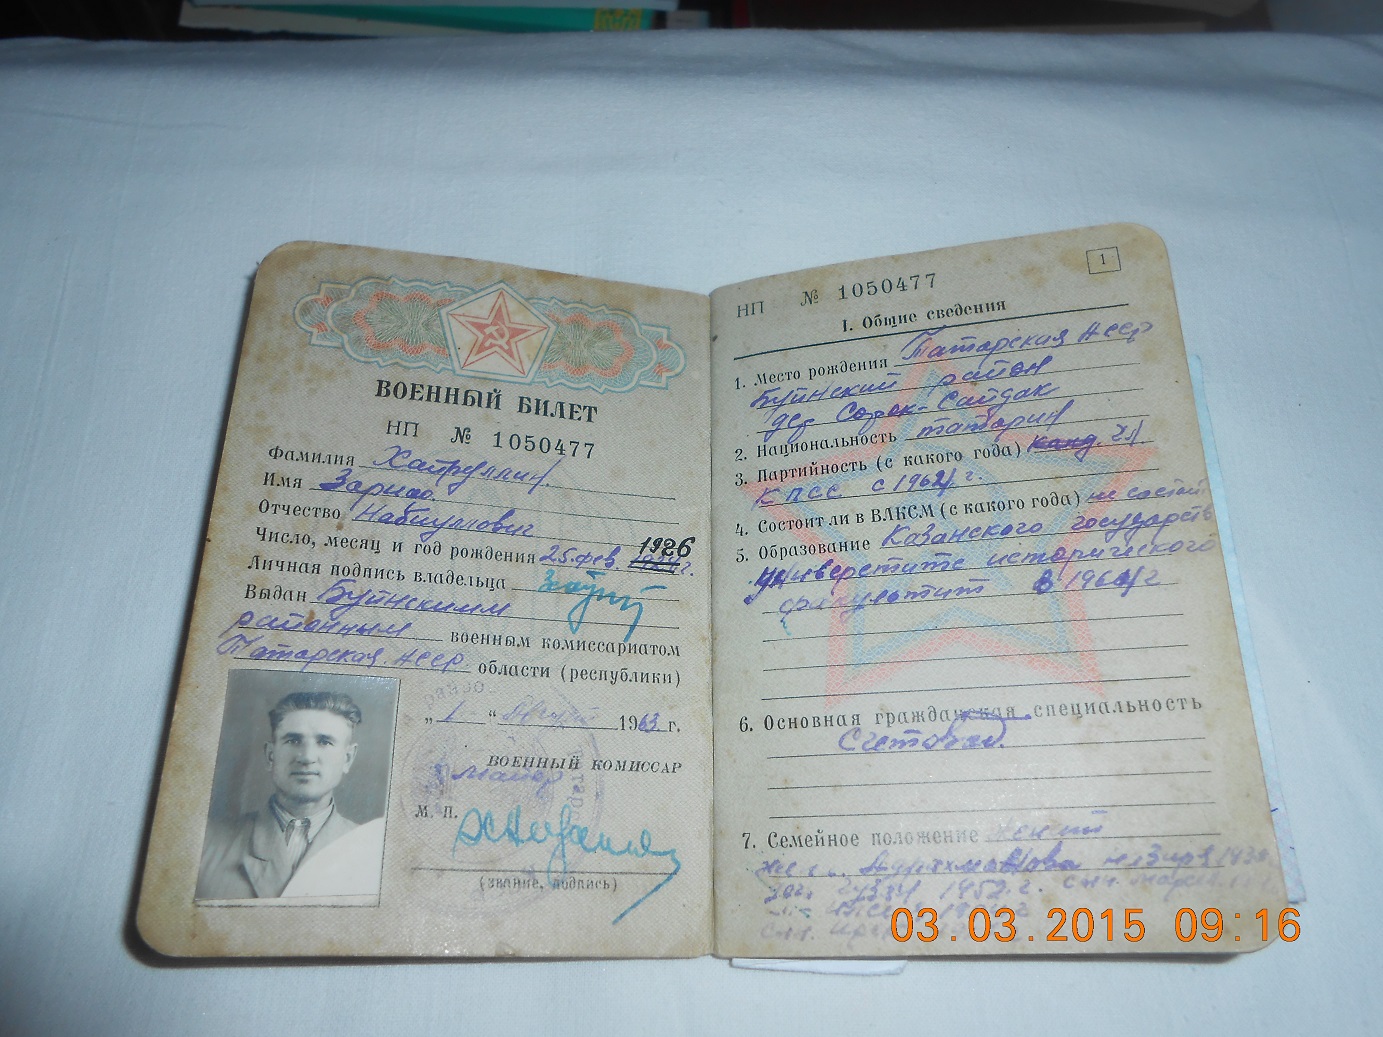 ВОЕННЫЙ БИЛЕТ
НП № 1050477
Фамилия Хайруллин
Имя Зариф
Отчество Набиуллович
Число, месяц и год рождения 25 фев. 1926 г.
Личная подпись владельца
Выдан Буинским
районным военным комиссариатом
Татарская АССР области (республики)
„ 1 “ 1963 г.
ВОЕННЫЙ КОМИССАР
майор
М. П.
(звание, подпись)
1
НП № 1050477
I. Общие сведения
1. Место рождения Татарская АССР
Буинский район
дер Сорок-Сайдак
2. Национальность татарин
3. Партийность (с какого года) канд.
КПСС с 1962 г.
4. Состоит ли в ВЛКСМ (с какого года) не состоит
5. Образование Казанского государств
университите исторического
факультит в 1960 г
6. Основная гражданская специальность
Счетовод.
7. Семейное положение женат
1952 г.
03.03.2015 09:16